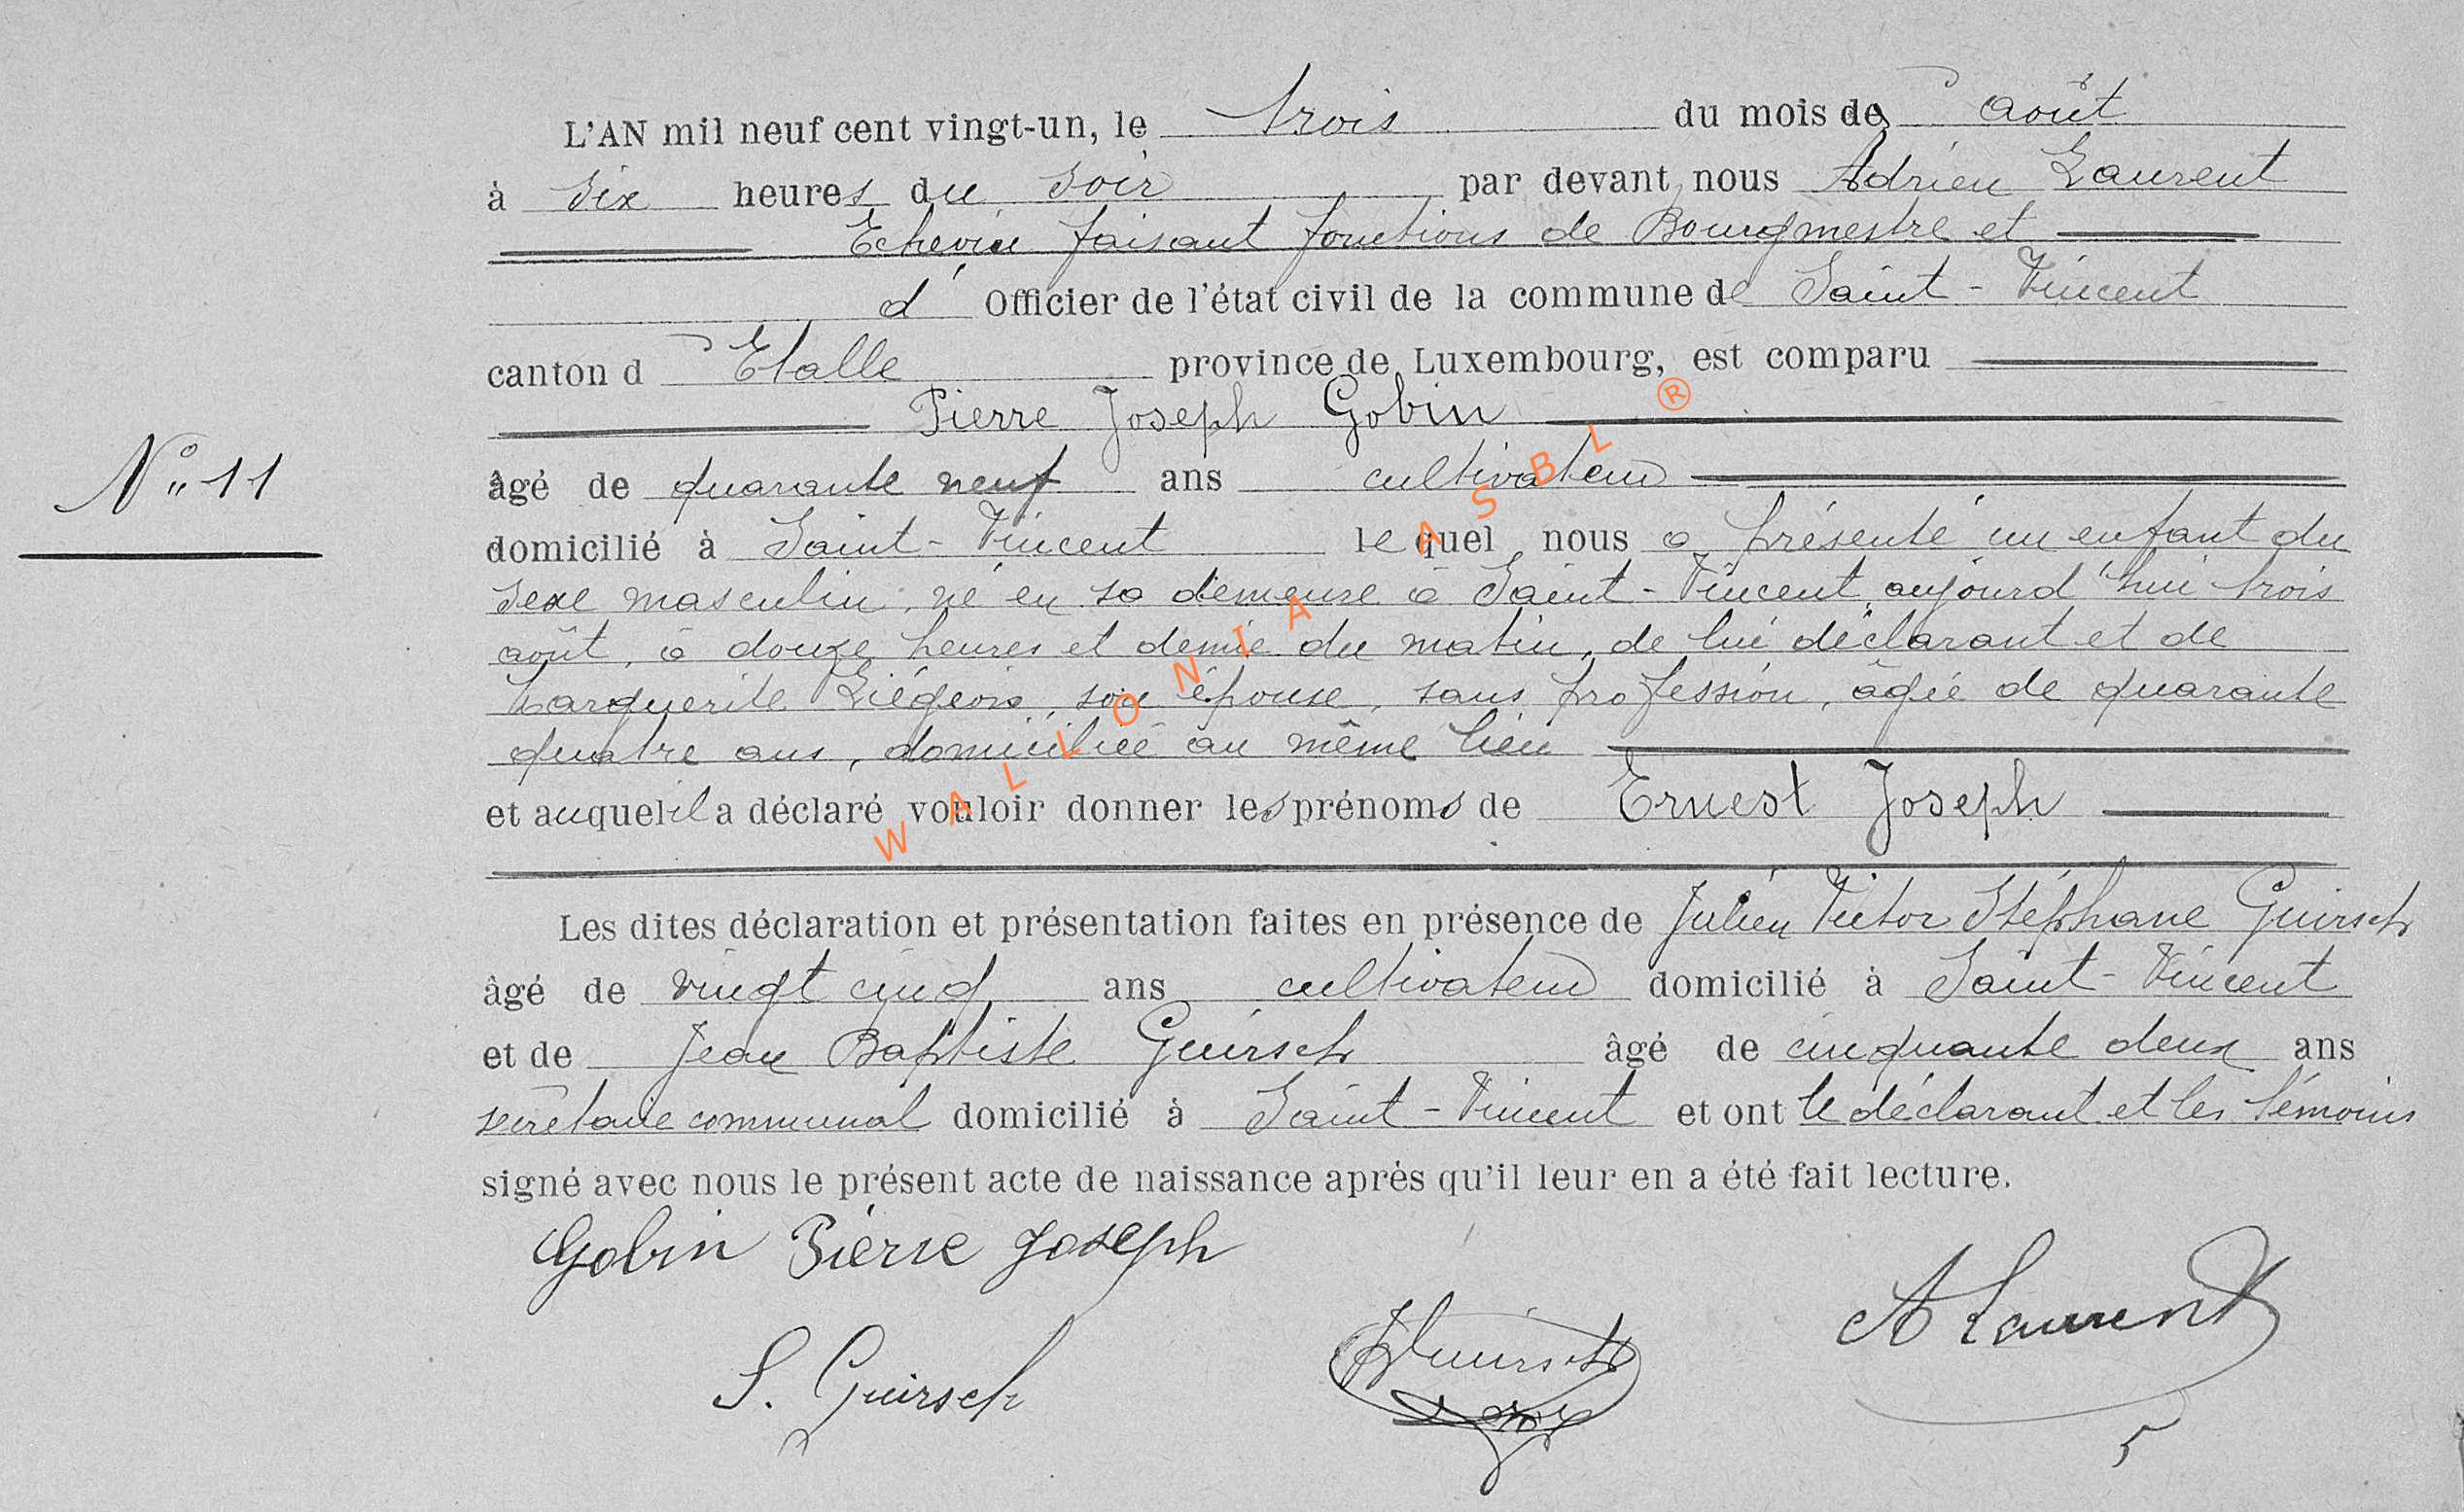 L'AN mil neuf cent vingt-un, le trois du mois de août
à six heures du soir par devant nous Adrien Laurent
Echevin faisant fonctions de Bourgmestre et
d' Officier de l'état civil de la commune de Saint-Vincent
canton d Etalle province de Luxembourg, est comparu
Pierre Joseph Gobin
N° 11
âgé de quarante neuf ans cultivateur
domicilié à Saint-Vincent lequel nous a présenté un enfant du
sexe masculin, né en sa demeure à Saint-Vincent, aujourd'hui trois
août, à douze heures et demie du matin, de lui déclarant et de
Marguerite Liégeois, son épouse, sans profession, âgée de quarante
quatre ans, domiciliée au même lieu
et auquel il a déclaré vouloir donner les prénoms de Ernest Joseph
Les dites déclaration et présentation faites en présence de Julien Victor Stéphane Guirsch
âgé de vingt cinq ans cultivateur domicilié à Saint-Vincent
et de Jean Baptiste Guirsch âgé de cinquante deux ans
secrétaire communal domicilié à Saint-Vincent et ont le déclarant et les témoins
signé avec nous le présent acte de naissance après qu'il leur en a été fait lecture.
Gobin Pierre Joseph
S. Guirsch
A Laurent
5
WALLONIA ASBL ®